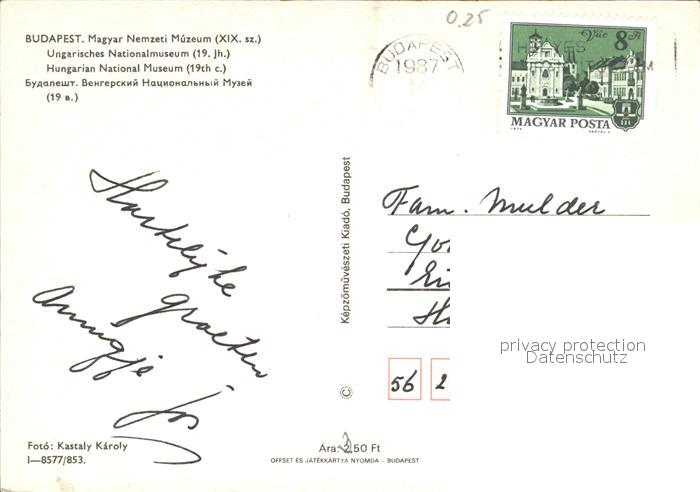 BUDAPEST. Magyar Nemzeti Múzeum (XIX. sz.)
Ungarisches Nationalmuseum (19. Jh.)
Hungarian National Museum (19th c.)
Будапешт. Венгерский Национальный Музей
(19 в.)
0.25
BUDAPEST
1987
Vác 8 Ft
MAGYAR POSTA
1974
Hartelijke
groeten
Fam. Mulder
56 2
Képzőművészeti Kiadó, Budapest
©
privacy protection
Datenschutz
Fotó: Kastaly Károly
I—8577/853.
Ára: 2,50 Ft
OFFSET ÉS JÁTÉKKÁRTYA NYOMDA – BUDAPEST